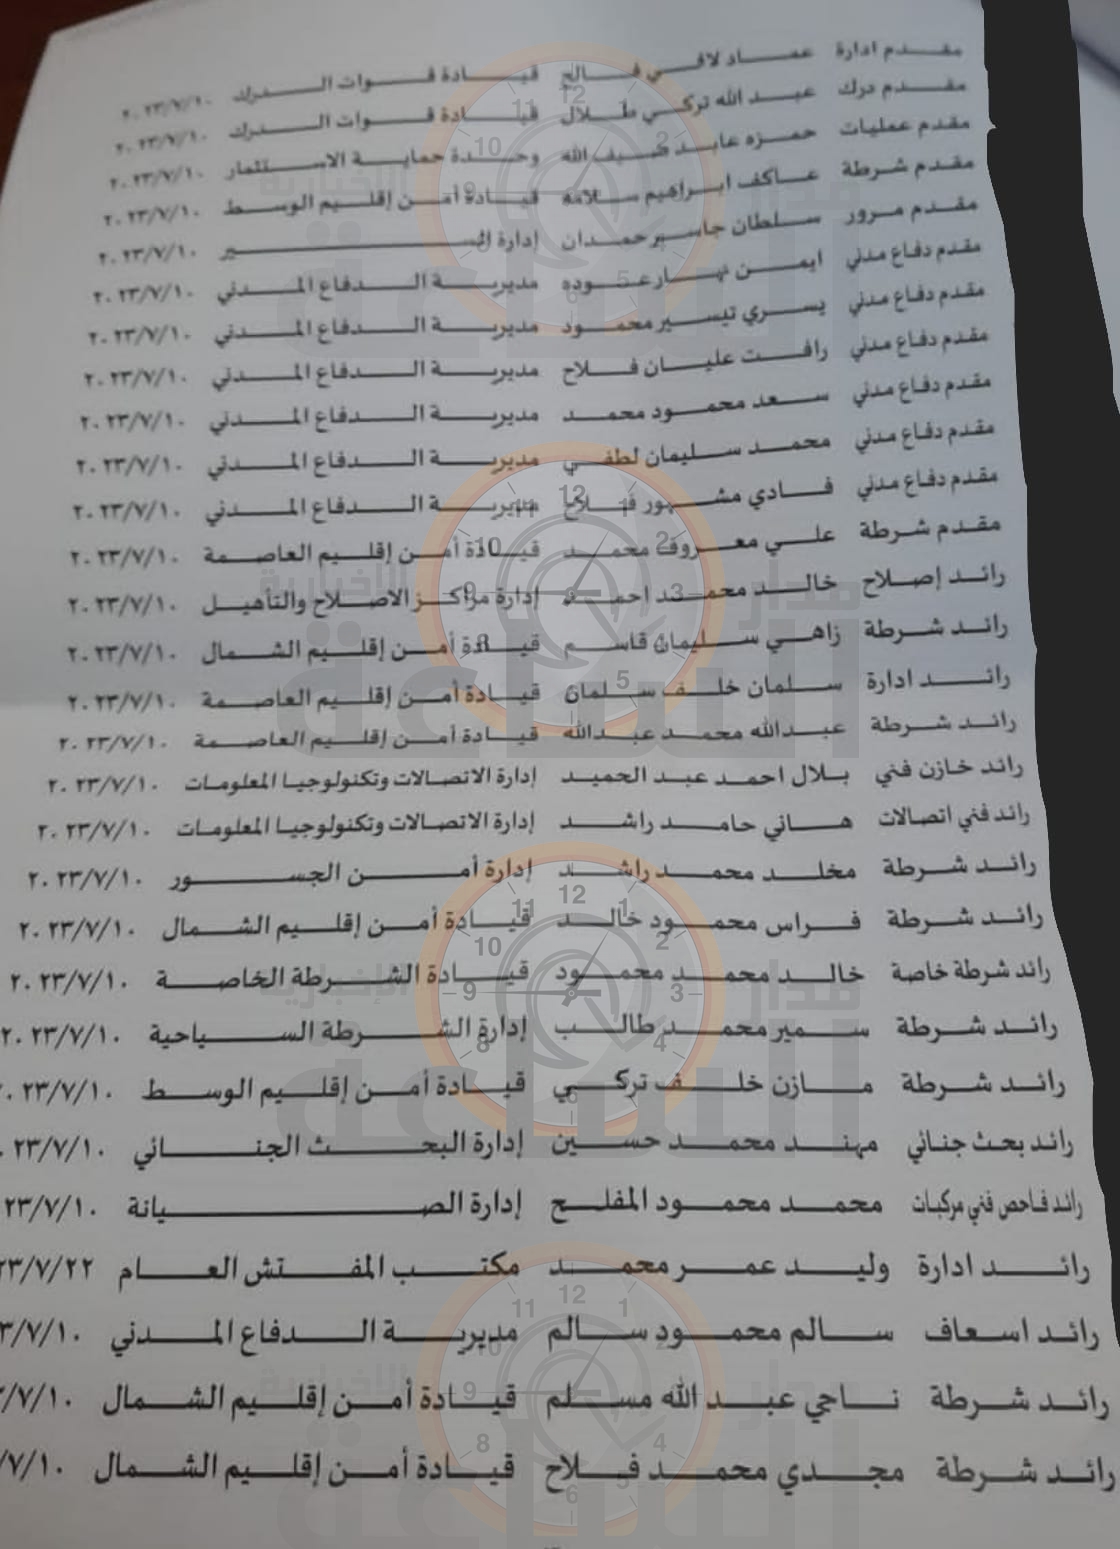 مقدم ادارة عماد لافي فالح قيادة قوات الدرك ٢٠٢٣/٧/١٠
مقدم درك عبد الله تركي طلال قيادة قوات الدرك ٢٠٢٣/٧/١٠
مقدم عمليات حمزه عابد ضيف الله وحدة حماية الاستثمار ٢٠٢٣/٧/١٠
مقدم شرطة عاكف ابراهيم سلامه قيادة أمن إقليم الوسط ٢٠٢٣/٧/١٠
مقدم مرور سلطان جاسر حمدان إدارة السير ٢٠٢٣/٧/١٠
مقدم دفاع مدني ايمن نهار عوده مديرية الدفاع المدني ٢٠٢٣/٧/١٠
مقدم دفاع مدني يسري تيسير محمود مديرية الدفاع المدني ٢٠٢٣/٧/١٠
مقدم دفاع مدني رافت عليان فلاح مديرية الدفاع المدني ٢٠٢٣/٧/١٠
مقدم دفاع مدني سعد محمود محمد مديرية الدفاع المدني ٢٠٢٣/٧/١٠
مقدم دفاع مدني محمد سليمان لطفي مديرية الدفاع المدني ٢٠٢٣/٧/١٠
مقدم دفاع مدني فادي مشهور فلاح مديرية الدفاع المدني ٢٠٢٣/٧/١٠
مقدم شرطة علي معروف محمد قيادة أمن إقليم العاصمة ٢٠٢٣/٧/١٠
رائد إصلاح خالد محمد احمد إدارة مراكز الاصلاح والتأهيل ٢٠٢٣/٧/١٠
رائد شرطة زاهي سليمان قاسم قيادة أمن إقليم الشمال ٢٠٢٣/٧/١٠
رائد ادارة سلمان خلف سلمان قيادة أمن إقليم العاصمة ٢٠٢٣/٧/١٠
رائد شرطة عبدالله محمد عبدالله قيادة أمن إقليم العاصمة ٢٠٢٣/٧/١٠
رائد خازن فني بلال احمد عبد الحميد إدارة الاتصالات وتكنولوجيا المعلومات ٢٠٢٣/٧/١٠
رائد فني اتصالات هاني حامد راشد إدارة الاتصالات وتكنولوجيا المعلومات ٢٠٢٣/٧/١٠
رائد شرطة مخلد محمد راشد إدارة أمن الجسور ٢٠٢٣/٧/١٠
رائد شرطة فراس محمود خالد قيادة أمن إقليم الشمال ٢٠٢٣/٧/١٠
رائد شرطة خاصة خالد محمد محمود قيادة الشرطة الخاصة ٢٠٢٣/٧/١٠
رائد شرطة سمير محمد طالب إدارة الشرطة السياحية ٢٠٢٣/٧/١٠
رائد شرطة مازن خلف تركي قيادة أمن إقليم الوسط ٢٠٢٣/٧/١٠
رائد بحث جنائي مهند محمد حسين إدارة البحث الجنائي ٠٢٣/٧/١٠
رائد فاحص فني مركبات محمد محمود المفلح إدارة الصيانة ٢٣/٧/١٠
رائد ادارة وليد عمر محمد مكتب المفتش العام ٢٣/٧/٢٢
رائد اسعاف سالم محمود سالم مديرية الدفاع المدني ٣/٧/١٠
رائد شرطة ناجي عبد الله مسلم قيادة أمن إقليم الشمال /٧/١٠
رائد شرطة مجدي محمد فلاح قيادة أمن إقليم الشمال /٧/١٠
مدار الساعة الإخبارية